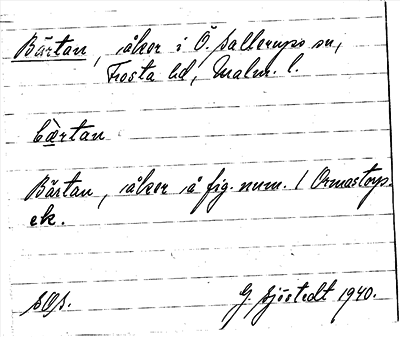 Bärtan, åker i Ö. Sallerups sn,
Frosta hd, Malm. l.
bærtan
Bärtan, åker å fig. num. 1 Ormastorp.
ek.
G. Sjöstedt 1940.